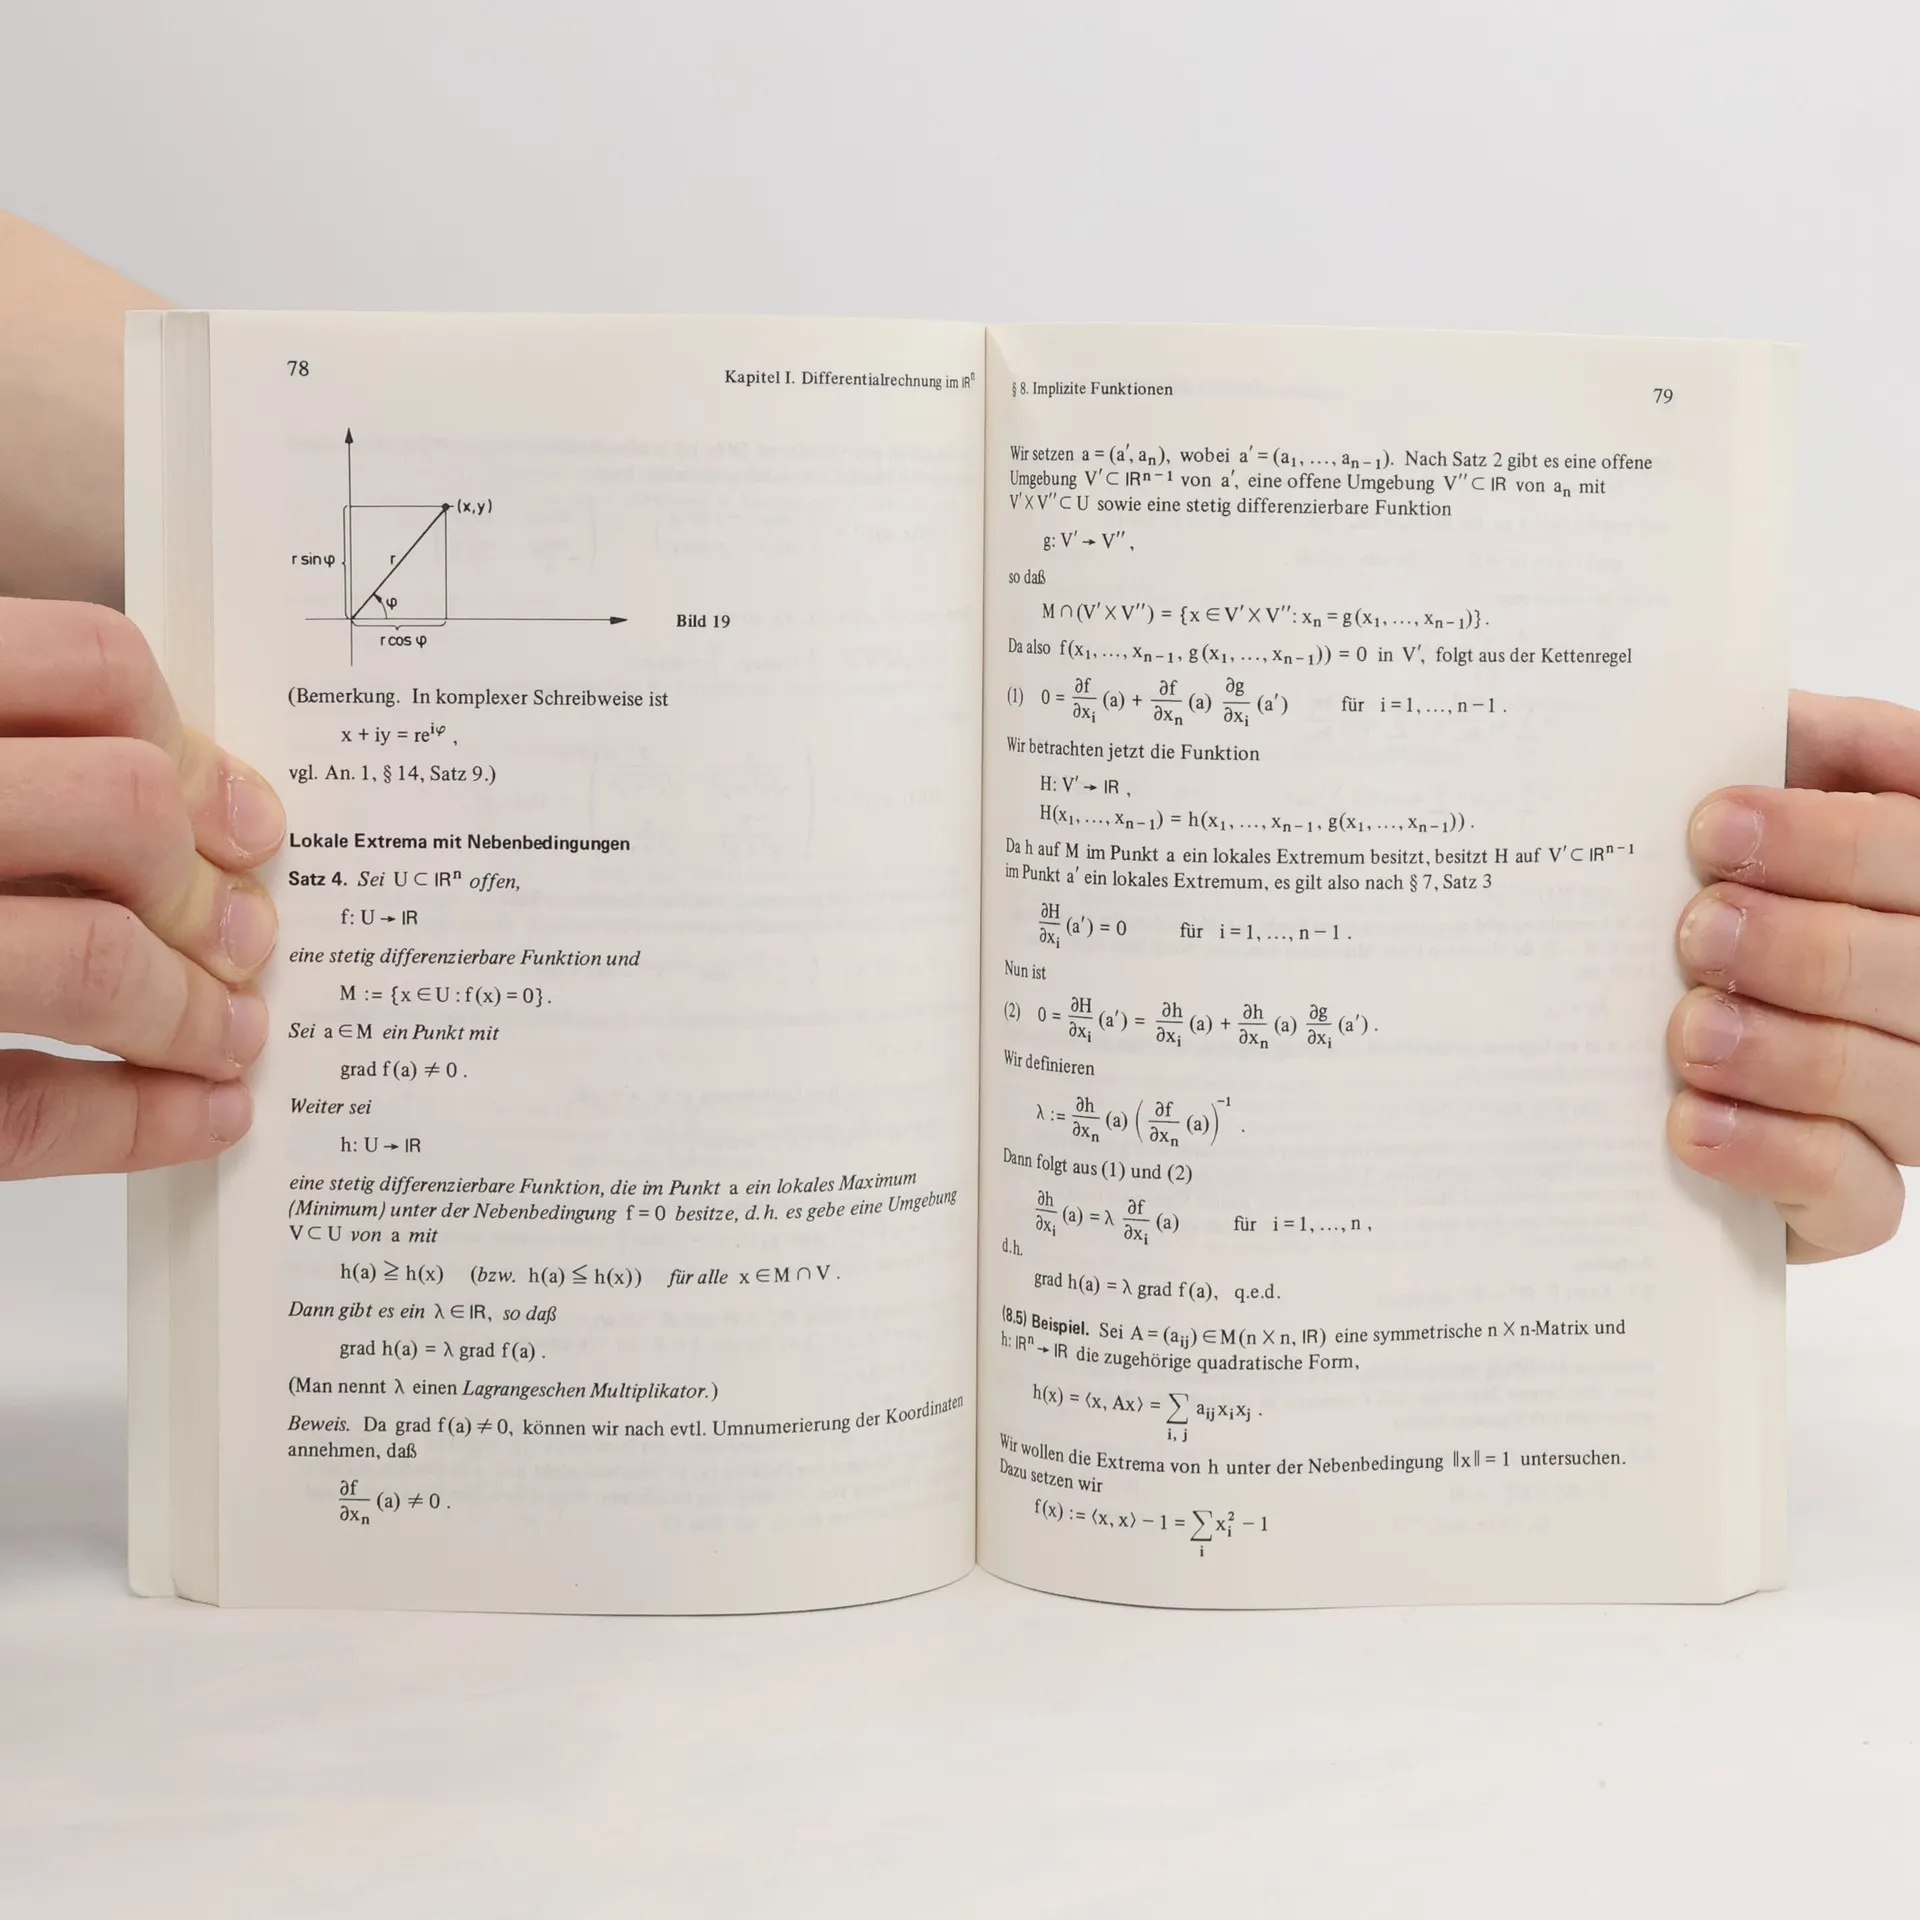 78
Kapitel I. Differentialrechnung im ℝⁿ
(x,y)
r sin φ
r
φ
r cos φ
Bild 19
(Bemerkung. In komplexer Schreibweise ist
x + iy = re^{iφ} ,
vgl. An. 1, § 14, Satz 9.)
Lokale Extrema mit Nebenbedingungen
Satz 4. Sei U ⊂ ℝⁿ offen,
f: U → ℝ
eine stetig differenzierbare Funktion und
M := {x ∈ U : f(x) = 0}.
Sei a ∈ M ein Punkt mit
grad f(a) ≠ 0 .
Weiter sei
h: U → ℝ
eine stetig differenzierbare Funktion, die im Punkt a ein lokales Maximum
(Minimum) unter der Nebenbedingung f = 0 besitze, d. h. es gebe eine Umgebung
V ⊂ U von a mit
h(a) ≧ h(x) (bzw. h(a) ≦ h(x)) für alle x ∈ M ∩ V .
Dann gibt es ein λ ∈ ℝ, so daß
grad h(a) = λ grad f(a) .
(Man nennt λ einen Lagrangeschen Multiplikator.)
Beweis. Da grad f(a) ≠ 0, können wir nach evtl. Umnumerierung der Koordinaten
annehmen, daß
∂f/∂xₙ (a) ≠ 0 .
§ 8. Implizite Funktionen
79
Wir setzen a = (a′, aₙ), wobei a′ = (a₁, ..., aₙ₋₁). Nach Satz 2 gibt es eine offene
Umgebung V′ ⊂ ℝⁿ⁻¹ von a′, eine offene Umgebung V″ ⊂ ℝ von aₙ mit
V′ × V″ ⊂ U sowie eine stetig differenzierbare Funktion
g: V′ → V″ ,
so daß
M ∩ (V′ × V″) = {x ∈ V′ × V″: xₙ = g(x₁, ..., xₙ₋₁)}.
Da also f(x₁, ..., xₙ₋₁, g(x₁, ..., xₙ₋₁)) = 0 in V′, folgt aus der Kettenregel
(1) 0 = ∂f/∂xᵢ (a) + ∂f/∂xₙ (a) ∂g/∂xᵢ (a′) für i = 1, ..., n − 1 .
Wir betrachten jetzt die Funktion
H: V′ → ℝ ,
H(x₁, ..., xₙ₋₁) = h(x₁, ..., xₙ₋₁, g(x₁, ..., xₙ₋₁)) .
Da h auf M im Punkt a ein lokales Extremum besitzt, besitzt H auf V′ ⊂ ℝⁿ⁻¹
im Punkt a′ ein lokales Extremum, es gilt also nach § 7, Satz 3
∂H/∂xᵢ (a′) = 0 für i = 1, ..., n − 1 .
Nun ist
(2) 0 = ∂H/∂xᵢ (a′) = ∂h/∂xᵢ (a) + ∂h/∂xₙ (a) ∂g/∂xᵢ (a′) .
Wir definieren
λ := ∂h/∂xₙ (a) (∂f/∂xₙ (a))⁻¹ .
Dann folgt aus (1) und (2)
∂h/∂xᵢ (a) = λ ∂f/∂xᵢ (a) für i = 1, ..., n ,
d.h.
grad h(a) = λ grad f(a), q.e.d.
(8.5) Beispiel. Sei A = (aᵢⱼ) ∈ M(n × n, ℝ) eine symmetrische n × n-Matrix und
h: ℝⁿ → ℝ die zugehörige quadratische Form,
h(x) = ⟨x, Ax⟩ = ∑_{i, j} aᵢⱼxᵢxⱼ .
Wir wollen die Extrema von h unter der Nebenbedingung ‖x‖ = 1 untersuchen.
Dazu setzen wir
f(x) := ⟨x, x⟩ − 1 = ∑_{i} xᵢ² − 1